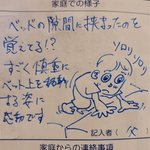 家庭での様子
ベッドの隙間に挟まったのを
覚えてる!?
すごく慎重に
ベット上を移動
する姿に
感動です
ソロリソロリ
記入者( 父 )
家庭からの連絡事項